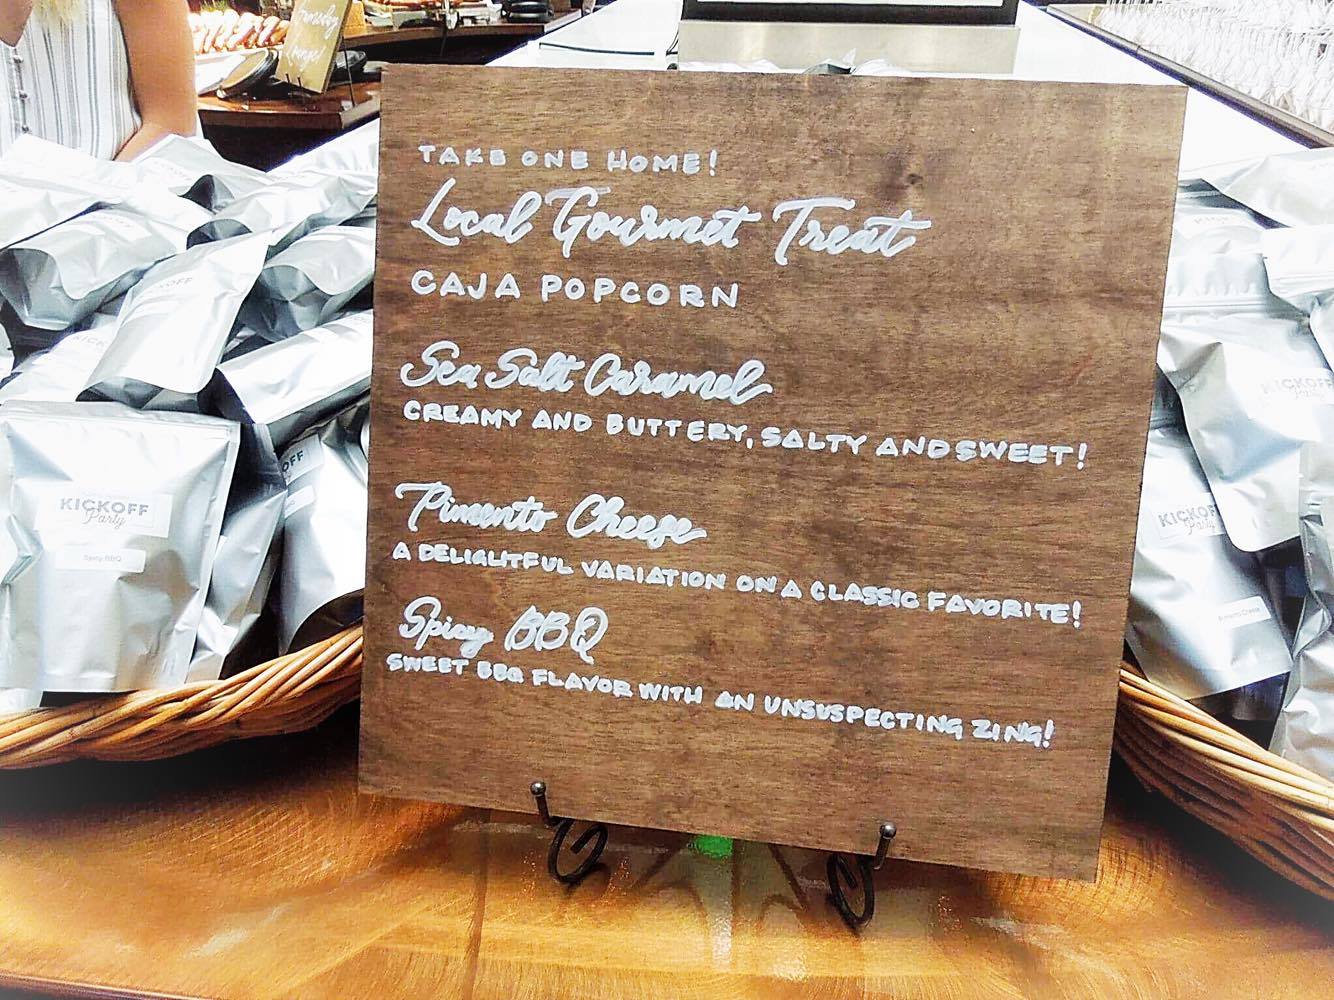 TAKE ONE HOME!
Local Gourmet Treat
CAJA POPCORN
Sea Salt Caramel
CREAMY AND BUTTERY, SALTY AND SWEET!
Pimento Cheese
A DELIGHTFUL VARIATION ON A CLASSIC FAVORITE!
Spicy BBQ
SWEET BBQ FLAVOR WITH AN UNSUSPECTING ZING!
KICKOFF
Party
Spicy BBQ
OFF
KICKOFF
Party
KICKOF
Party
Pimento Cheese